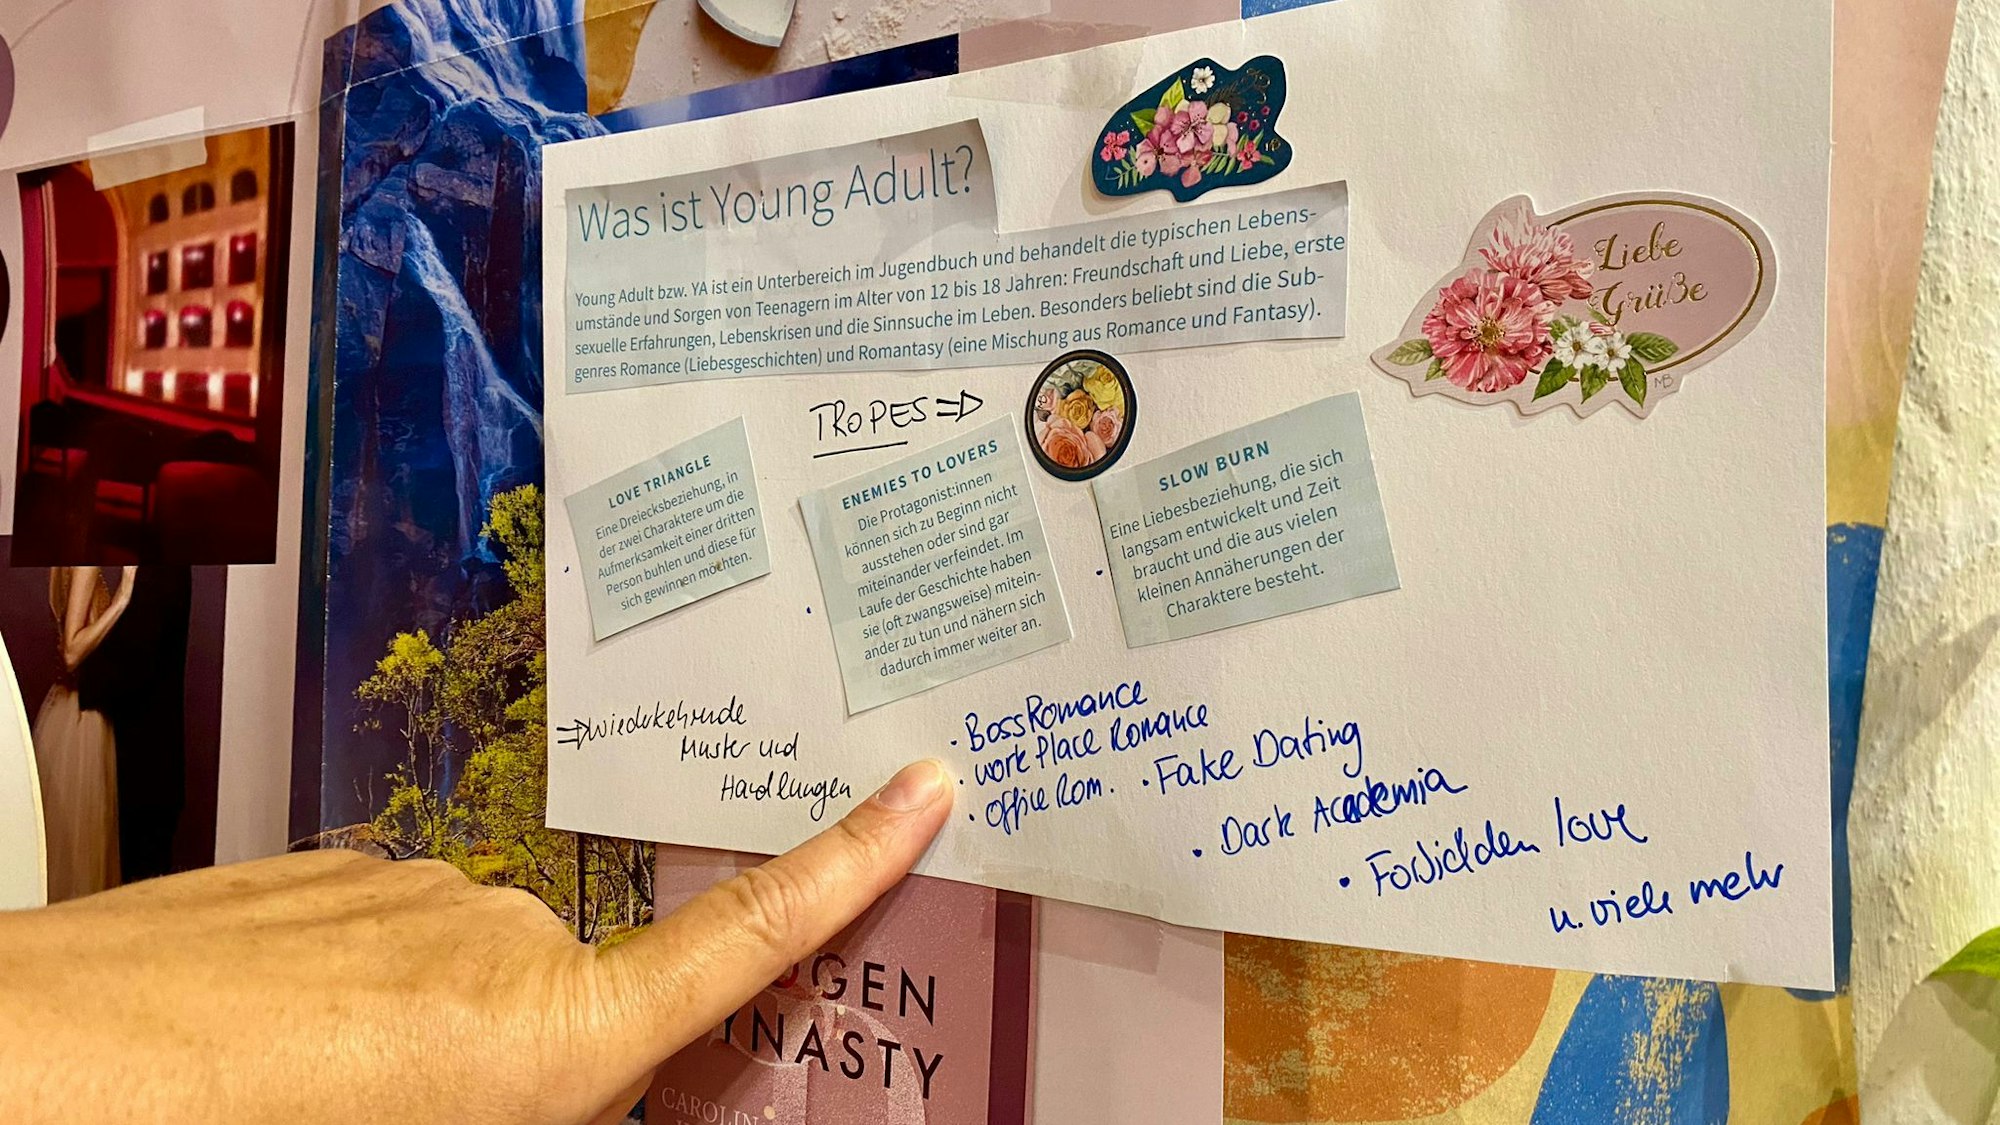 Was ist Young Adult?
Young Adult bzw. YA ist ein Unterbereich im Jugendbuch und behandelt die typischen Lebens-
umstände und Sorgen von Teenagern im Alter von 12 bis 18 Jahren: Freundschaft und Liebe, erste
sexuelle Erfahrungen, Lebenskrisen und die Sinnsuche im Leben. Besonders beliebt sind die Sub-
genres Romance (Liebesgeschichten) und Romantasy (eine Mischung aus Romance und Fantasy).
Liebe
Grüße
MB
TROPES =>
LOVE TRIANGLE
Eine Dreiecksbeziehung, in
der zwei Charaktere um die
Aufmerksamkeit einer dritten
Person buhlen und diese für
sich gewinnen möchten.
ENEMIES TO LOVERS
Die Protagonist:innen
können sich zu Beginn nicht
ausstehen oder sind gar
miteinander verfeindet. Im
Laufe der Geschichte haben
sie (oft zwangsweise) mitein-
ander zu tun und nähern sich
dadurch immer weiter an.
SLOW BURN
Eine Liebesbeziehung, die sich
langsam entwickelt und Zeit
braucht und die aus vielen
kleinen Annäherungen der
Charaktere besteht.
=> Wiederkehrende
Muster und
Handlungen
• BossRomance
• work Place Romance
• Office Rom.
• Fake Dating
• Dark Academia
• Forbidden love
u. viele mehr
OGEN
YNASTY
CAROLIN